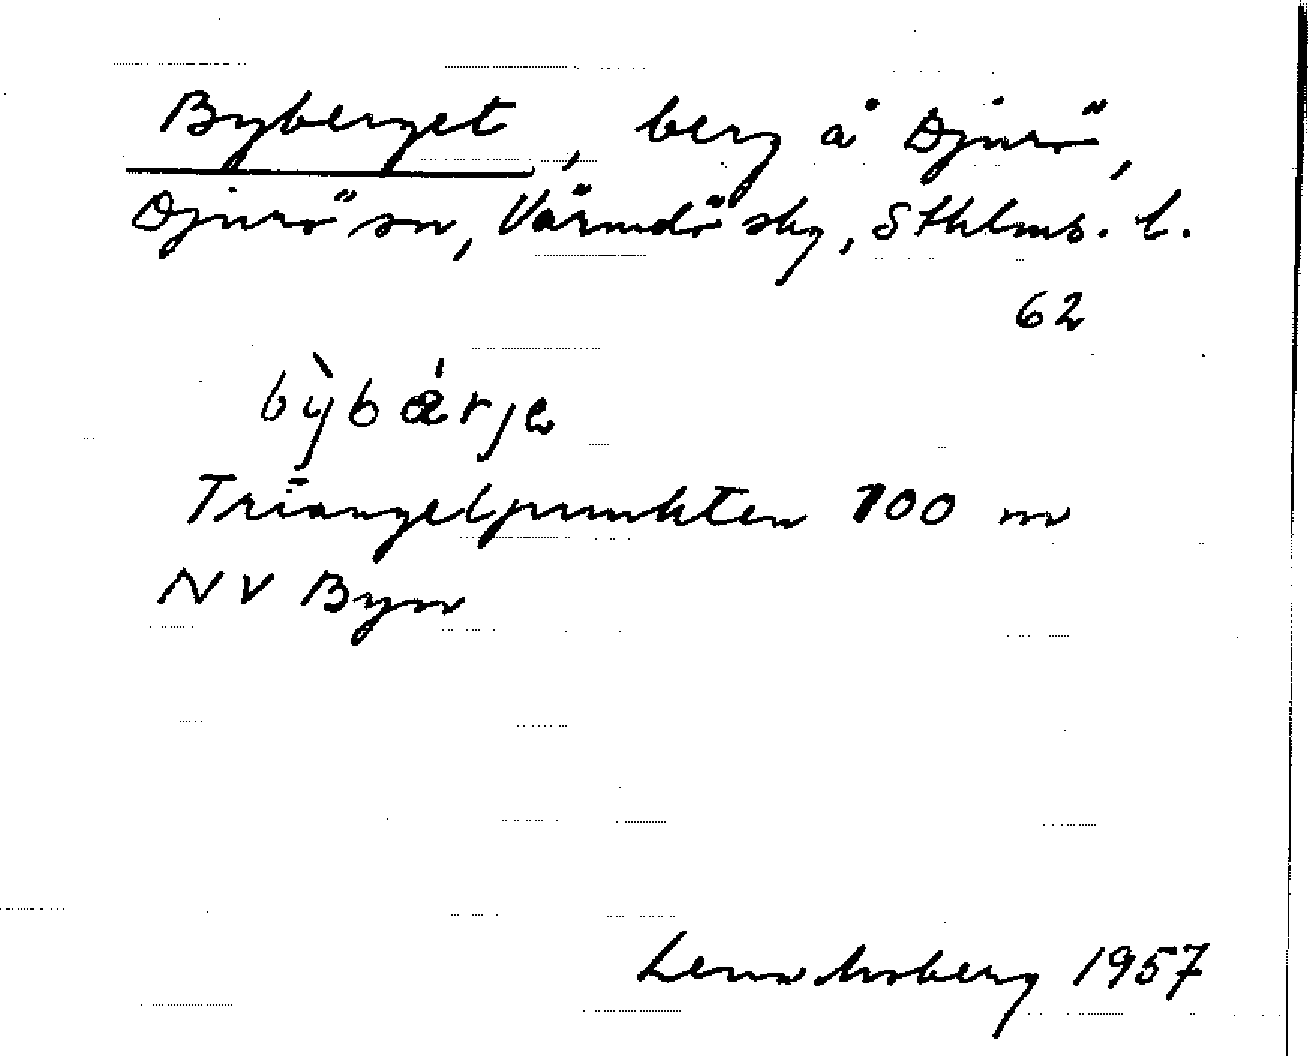 Byberget, berg å Djurö,
Djurö sn, Värmdö skg, Sthlms. l.
62
bỳbǽrje
Triangelpunkten 100 m
NV Byn
Lena Moberg 1957